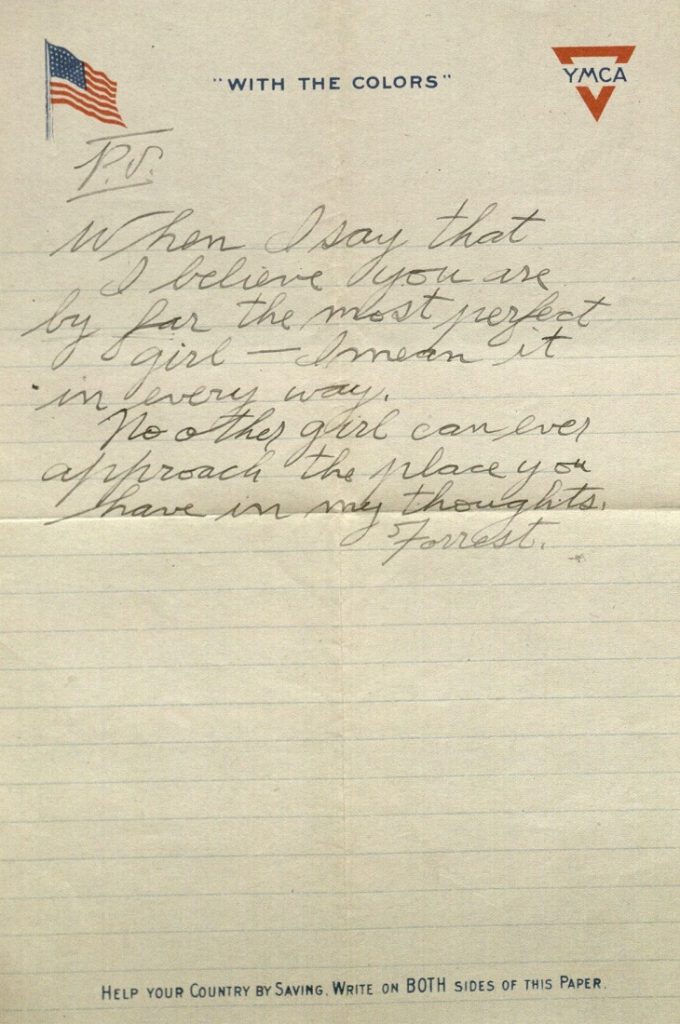 "WITH THE COLORS"
YMCA
P.S.
When I say that
I believe you are
by far the most perfect
girl — I mean it
in every way.
No other girl can ever
approach the place you
have in my thoughts.
Forrest.
HELP YOUR COUNTRY BY SAVING. WRITE ON BOTH SIDES OF THIS PAPER.